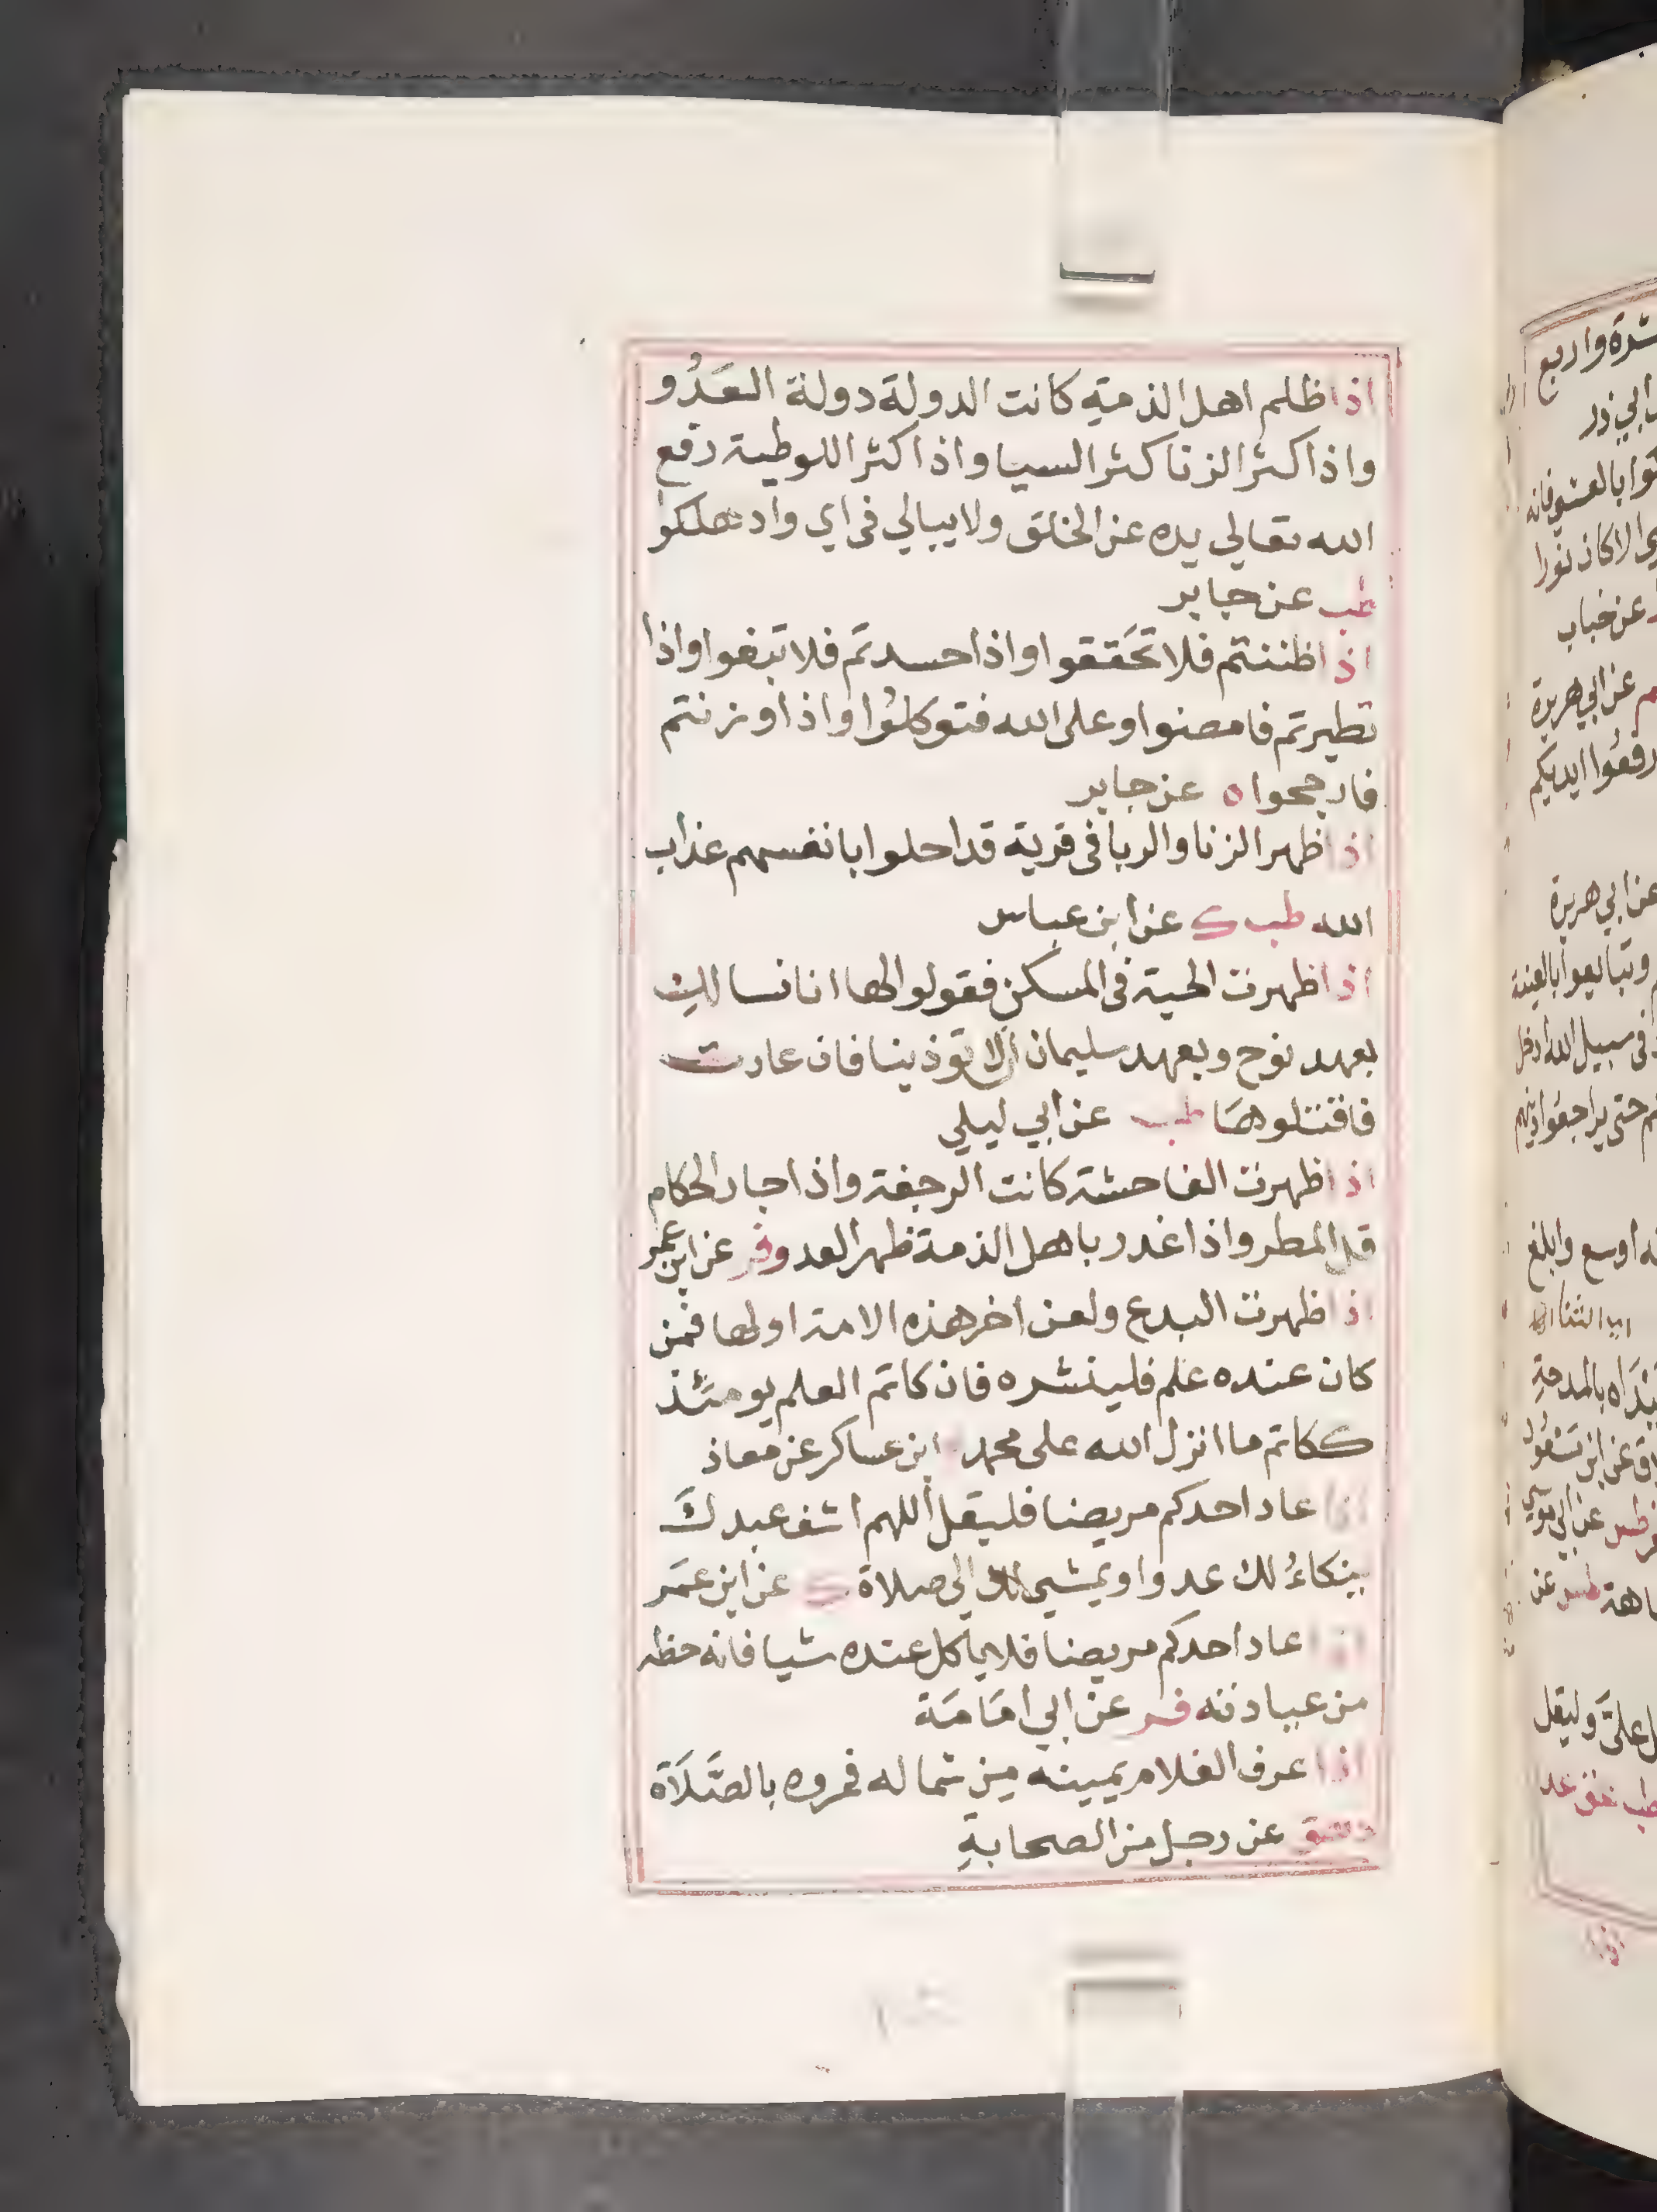 اذا ظلم اهل الذمة كانت الدولة دولة العَدُو
واذا كثر الزنا كثر السبا واذا كثر اللوطية رفع
الله تعالي يده عن الخلق ولا يبالي فى اي واد هلكوا
طب عن جابر
اذا ظننتم فلا تحَققوا واذا حسدتم فلا تبغوا واذا
تطيرتم فامضوا وعلى الله فتوكلوُا واذا وزنتم
فارجحوا ه عن جابر
اذا ظهر الزنا والربا فى قرية قد احلوا بانفسهم عذاب
الله طب ك عن ابن عباس
اذا ظهرت الحية فى المسكن فقولوا لها انا نسالكِ
بعهد نوح وبعهد سليمان ان لا توذينا فان عادت
فاقتلوهَا طب عن ابي ليلي
اذا ظهرت الفاحشة كانت الرجفة واذا جار الحكام
قل المطر واذا غدر باهل الذمة ظهر العدو فر عن ابن عمر
اذا ظهرت البدع ولعن اخر هذه الامة اولها فمن
كان عنده علم فلينشره فان كاتم العلم يومئذ
ككاتم ما انزل الله على محمد ابن عساكر عن معاذ
اذا عاد احدكم مريضا فليقل اللهم اشف عبدكَ
ينكاءُ لك عدوا او يمشي لك الي صلاة ك عن ابن عمَر
اذا عاد احدكم مريضا فلا ياكل عنده شيا فانه حظه
من عيادته فر عن ابي امَامَة
اذا عرف الغلام يمينه مِن شماله فمروه بالصَّلَاة
د هق عن رجل من الصحابةِ
شدة واربع
ابي ذر
عن خباب
عن ابي هريرة
رفعُوا ايديكم
عن ابي هريرة
وتبايعوا بالعينة
فى سبيل الله ادخل
حتى يراجعُوا دينهم
اوسع وابلغ
عن ابن مسعُود
طس عن ابي موسي
طس عن
علىَّ وليقل